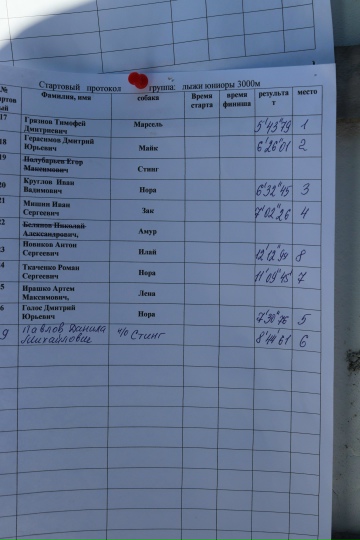 Стартовый протокол группа: лыжи юниоры 3000м
№ Фамилия, имя собака Время время результа место
ртов старта финиша т
ый
17 Грязнов Тимофей Марсель 5'43"79 1
Дмитриевич
18 Герасимов Дмитрий Майк 6'26"01 2
Юрьевич
19 Полубарьев Егор Стинг
Максимович
20 Круглов Иван Нора 6'32"45 3
Вадимович
21 Мишин Иван Зак 7'02"26 4
Сергеевич
22 Беляков Николай Амур
Александрович,
23 Новиков Антон Плай 12'12"99 8
Сергеевич
4 Ткаченко Роман Нора 11'09"45 7
Сергеевич
5 Ирашко Артем Лена
Максимович,
6 Голос Дмитрий Нора 7'30"76 5
Юрьевич
9 Павлов Данила ч/о Стинг 8'44"61 6
Михайлович